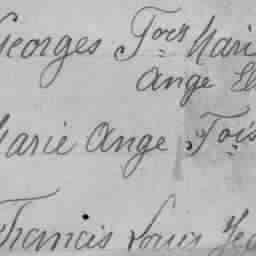 Georges Fçois Mari
Ange El
Marie Ange Fçois
Francis Louis Jea